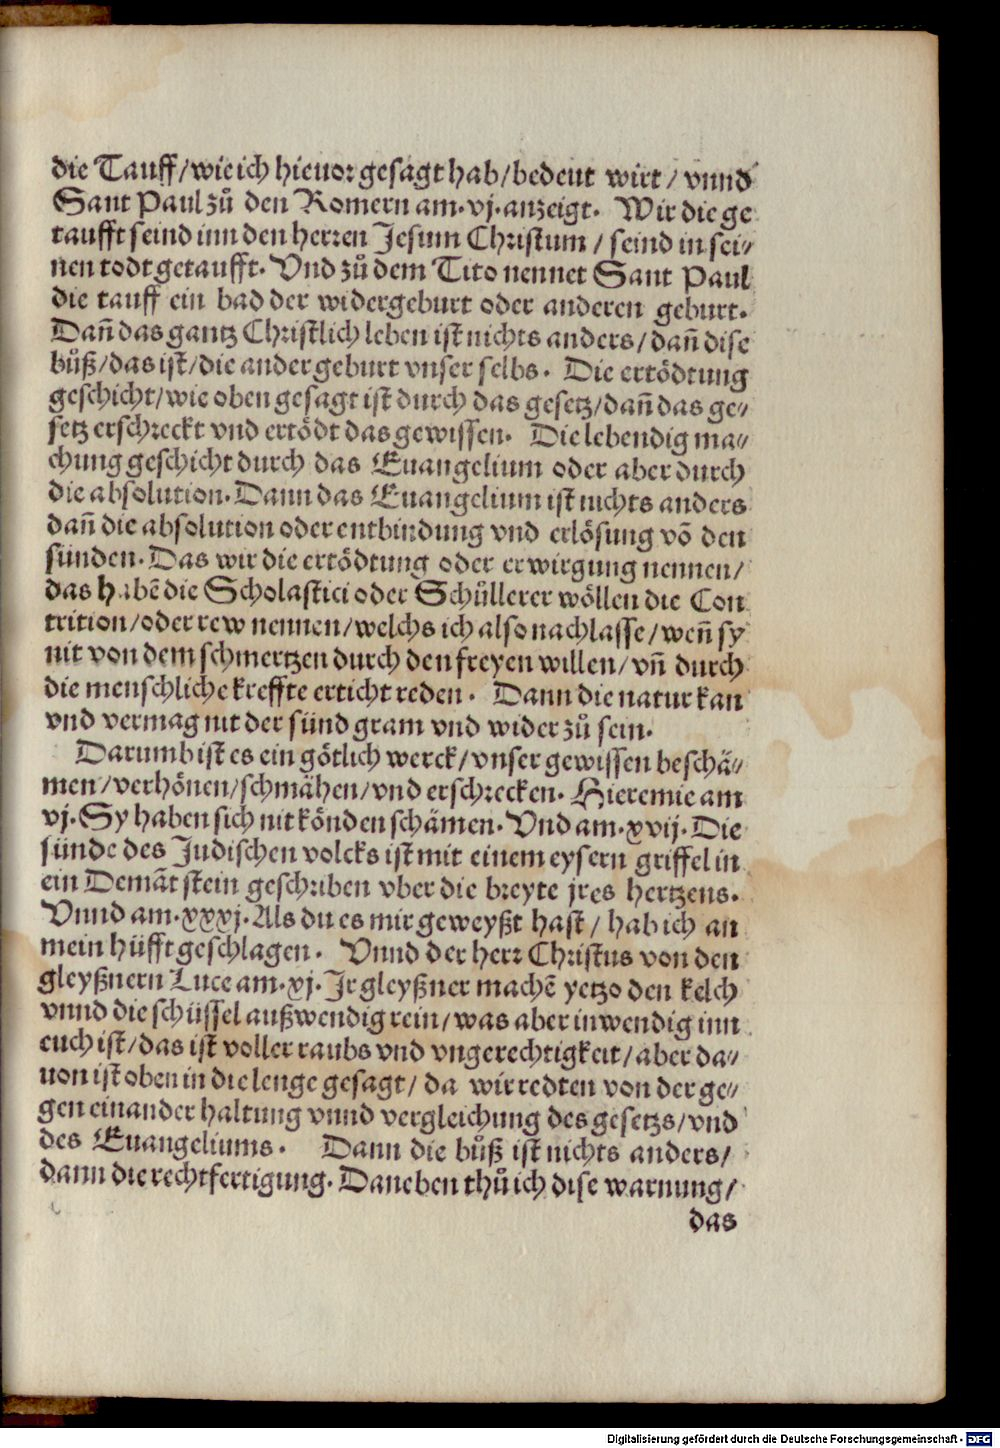 die Tauff/wie ich hieuor gesagt hab/bedeut wirt/ vnnd
Sant Paul zů den Romern am.vj.anzeigt. Wir die ge
taufft seind inn den herren Jesum Christum / seind in sei⸗
nen todt getaufft. Vnd zů dem Tito nennet Sant Paul
die tauff ein bad der widergeburt oder anderen geburt.
Dañ das gantz Christlich leben ist nichts anders/dañ dise
bůß/das ist/die ander geburt vnser selbs. Die ertödtung
geschicht/wie oben gesagt ist durch das gesetz/dañ das ge⸗
setz erschreckt vnd ertödt das gewissen. Die lebendig ma⸗
chung geschicht durch das Euangelium oder aber durch
die absolution. Dann das Euangelium ist nichts anders
dañ die absolution oder entbindung vnd erlösung võ den
sünden. Das wir die ertödtung oder erwirgung nennen/
das habẽ die Scholastici oder Schüllerer wöllen die Con
trition/oder rew nennen/welchs ich also nachlasse/weñ sy
nit von dem schmertzen durch den freyen willen/vñ durch
die menschliche kreffte erticht reden. Dann die natur kan
vnd vermag nit der sünd gram vnd wider zů sein.
Darumb ist es ein götlich werck/vnser gewissen beschä⸗
men/verhönen/schmähen/vnd erschrecken. Hieremie am
vj. Sy haben sich nit könden schämen. Vnd am.xvij. Die
sünde des Judischen volcks ist mit einem eysern griffel in
ein Demãt stein geschriben vber die breyte jres hertzens.
Vnnd am.xxxj. Als du es mir geweyßt hast / hab ich an
mein hüfft geschlagen. Vnnd der herr Christus von den
gleyßnern Luce am.xj. Jr gleyßner machẽ yetzo den kelch
vnnd die schüssel außwendig rein/was aber inwendig inn
euch ist/das ist voller raubs vnd vngerechtigkeit/aber da⸗
uon ist oben in die lenge gesagt/ da wir redten von der ge⸗
gen einander haltung vnnd vergleichung des gesetzs/vnd
des Euangeliums. Dann die bůß ist nichts anders/
dann die rechtfertigung. Daneben thů ich dise warnung/
das
Digitalisierung gefördert durch die Deutsche Forschungsgemeinschaft - DFG